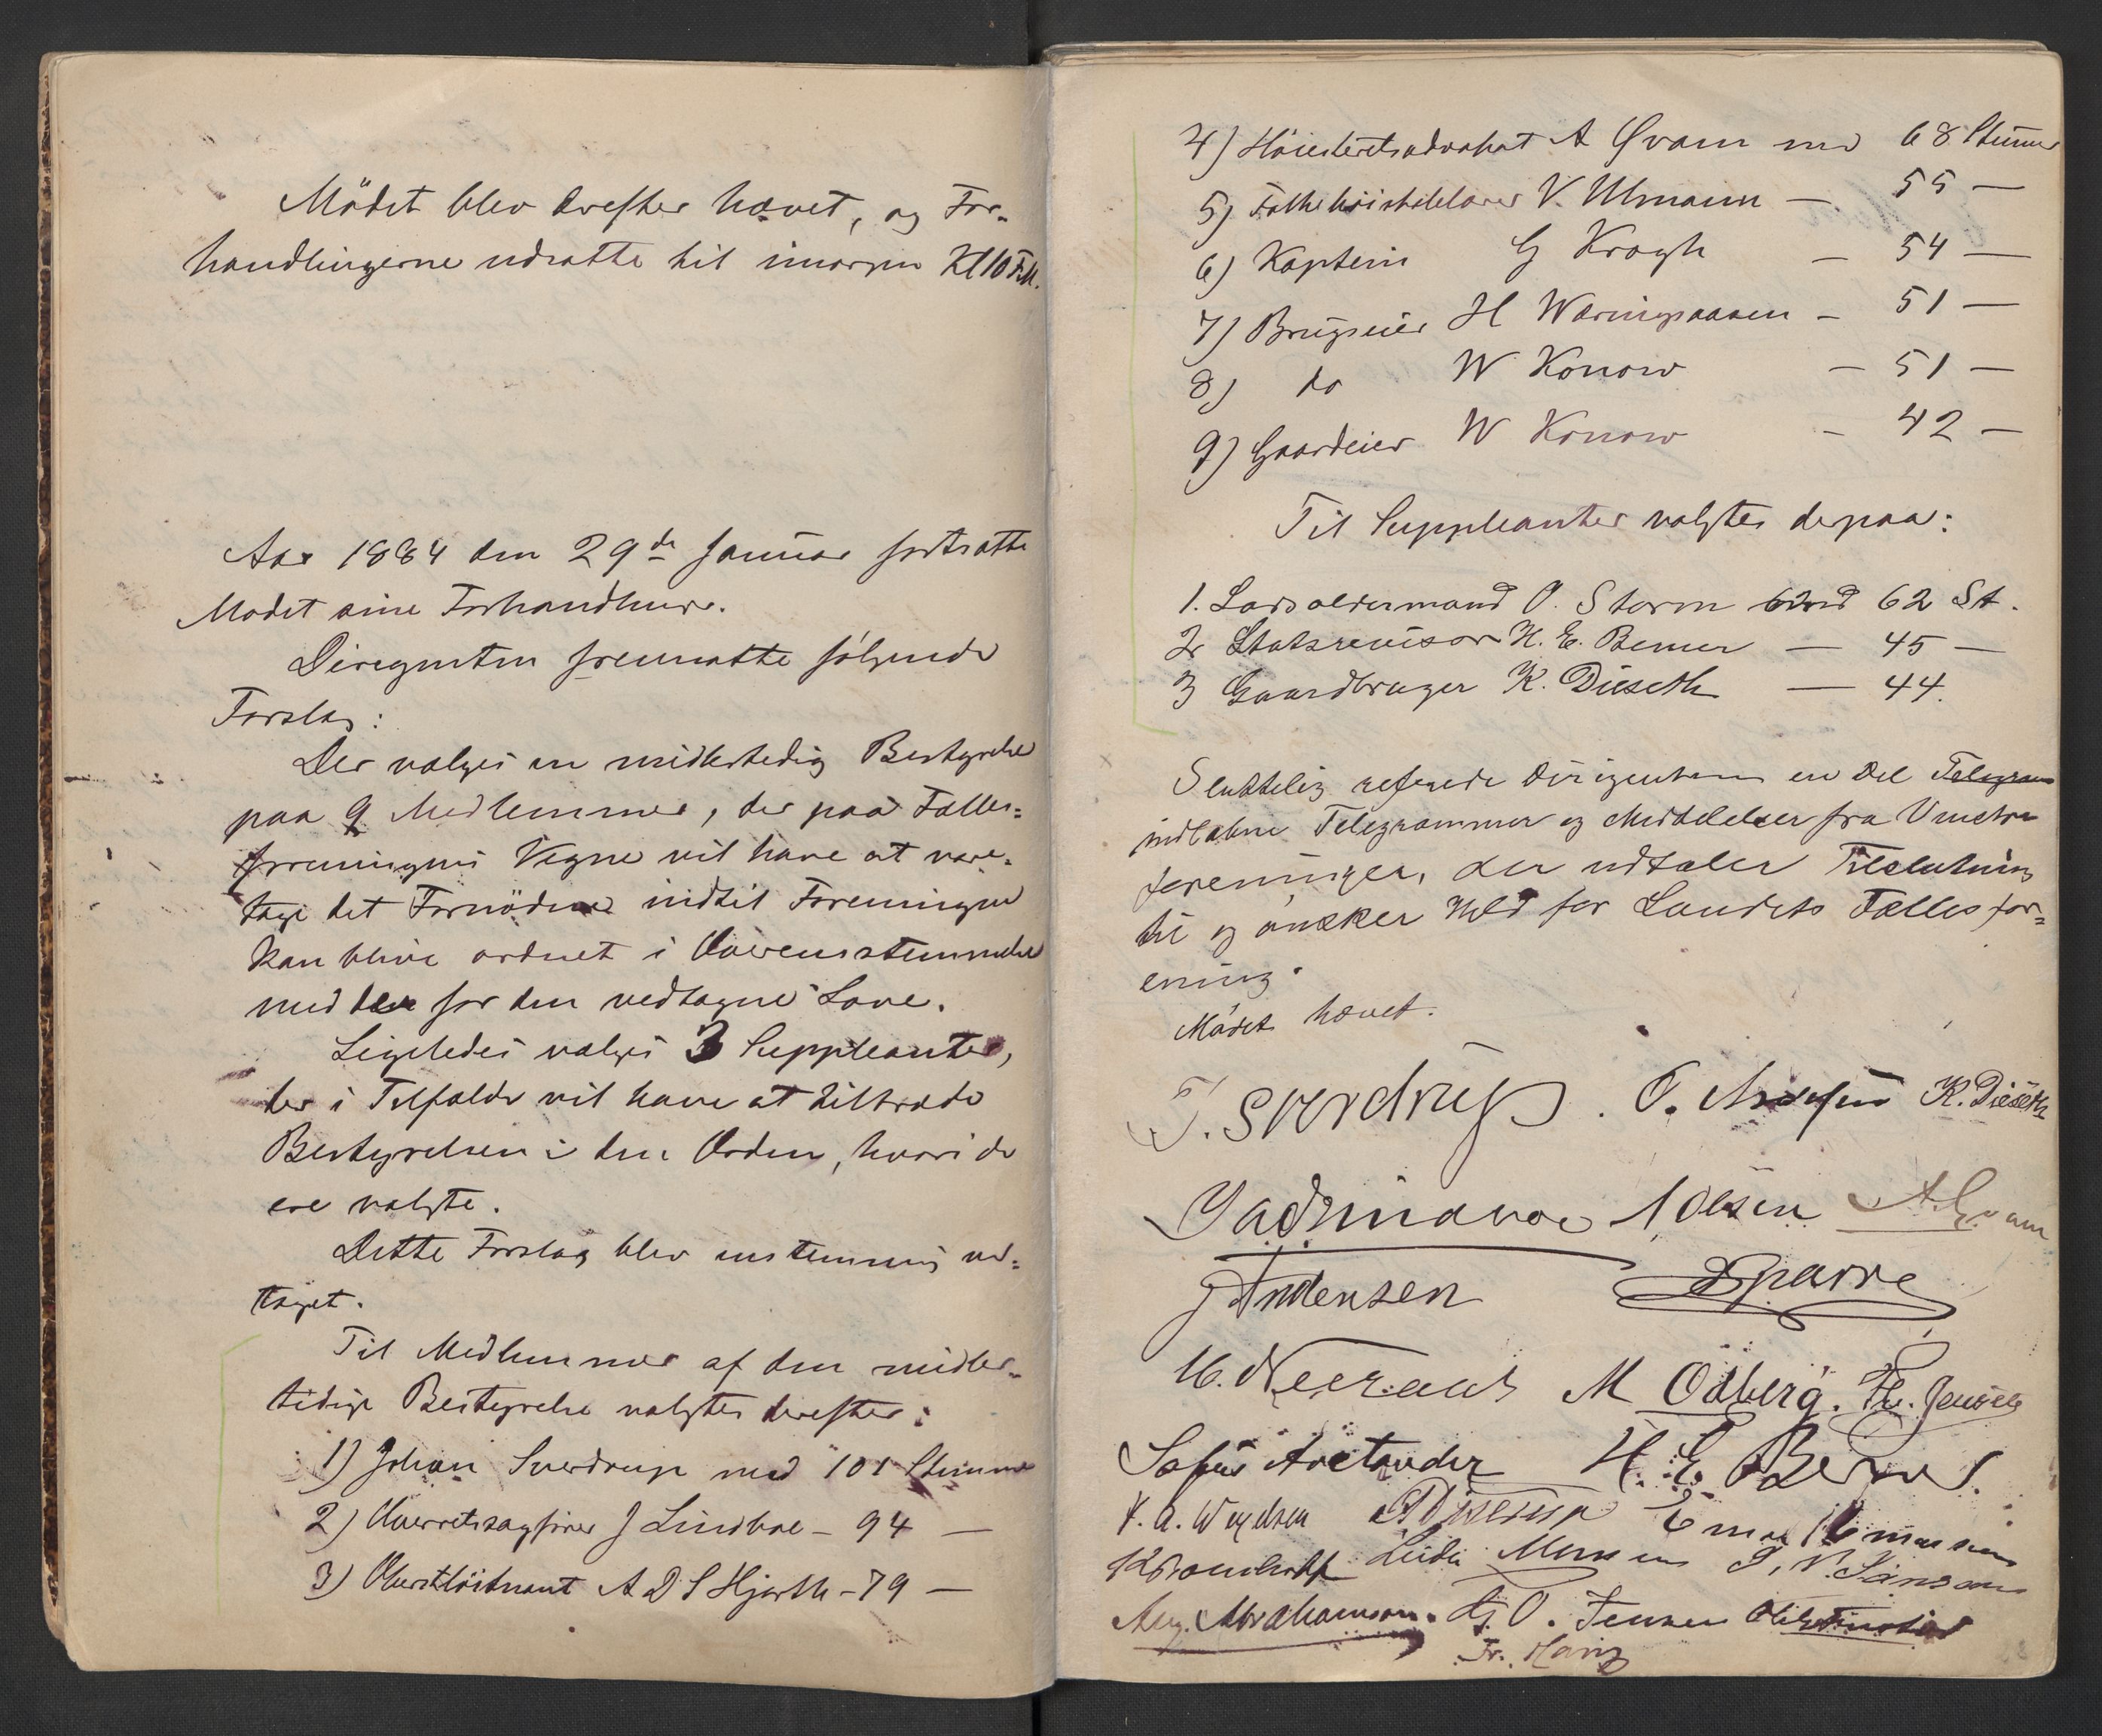 Mödet blev derefter hævet, og For-
handlingerne udsatte til imorgen Kl 10 F.M.
Aar 1884 den 29de Januar fortsatte
Mødet sine Forhandlinger.
Dirigenten fremsatte følgende
Forslag:
Der vælges en midlertidig Bestyrelse
paa 9 Medlemmer, der paa Fælles-
foreningens Vegne vil have at vare-
tage det Fornödne indtil Foreningen
kan blive ordnet i Overensstemmelse
med de for den vedtagne Love.
Ligeledes vælges 3 Suppleanter,
der i Tilfælde vil have at tiltræde
Bestyrelsen i den Orden, hvori de
ere valgte.
Dette Forslag blev enstemmig ved-
taget.
Til Medlemmer af den midler-
tidige Bestyrelse valgtes derefter:
1) Johan Sverdrup med 101 Stemmer
2) Overretssagfører J Lindboe - 94 —
3) Oberstløitnant A D S Hjorth - 79 —
4) Høiesteretsadvokat A Qvam med 68 Stemmer
5) Folkehøiskolelærer V. Ullmann — 55 —
6) Kaptein G Krogh — 54 —
7) Brugseier H Wæringsaasen - 51 —
8) do W Konow — 51 —
9) Gaardeier W Konow - 42 —
Til Suppleanter valgtes derpaa:
1. Lodsoldermand O. Storm med 62 St.
2 Statsrevisor H. E. Berner — 45 —
3 Gaardbruger K. Dieseth — 44.
Sluttelig refererede Dirigenten en Del Telegram
indløbne Telegrammer og Meddelelser fra Venstre
foreninger, der udtaler Tilslutning
til og önsker Held for Landets Fællesfor-
ening.
Mödet hævet.
J. Sverdrup. O. K. Dieseth
Olsen A. Qvam
J Andensen Sparre
M Ödberg. Jensen
Sofus Arctander H. E. Berner.
V. A. Wexelsen
Aug. Abrahamson. G. O. Jensen
Fr.